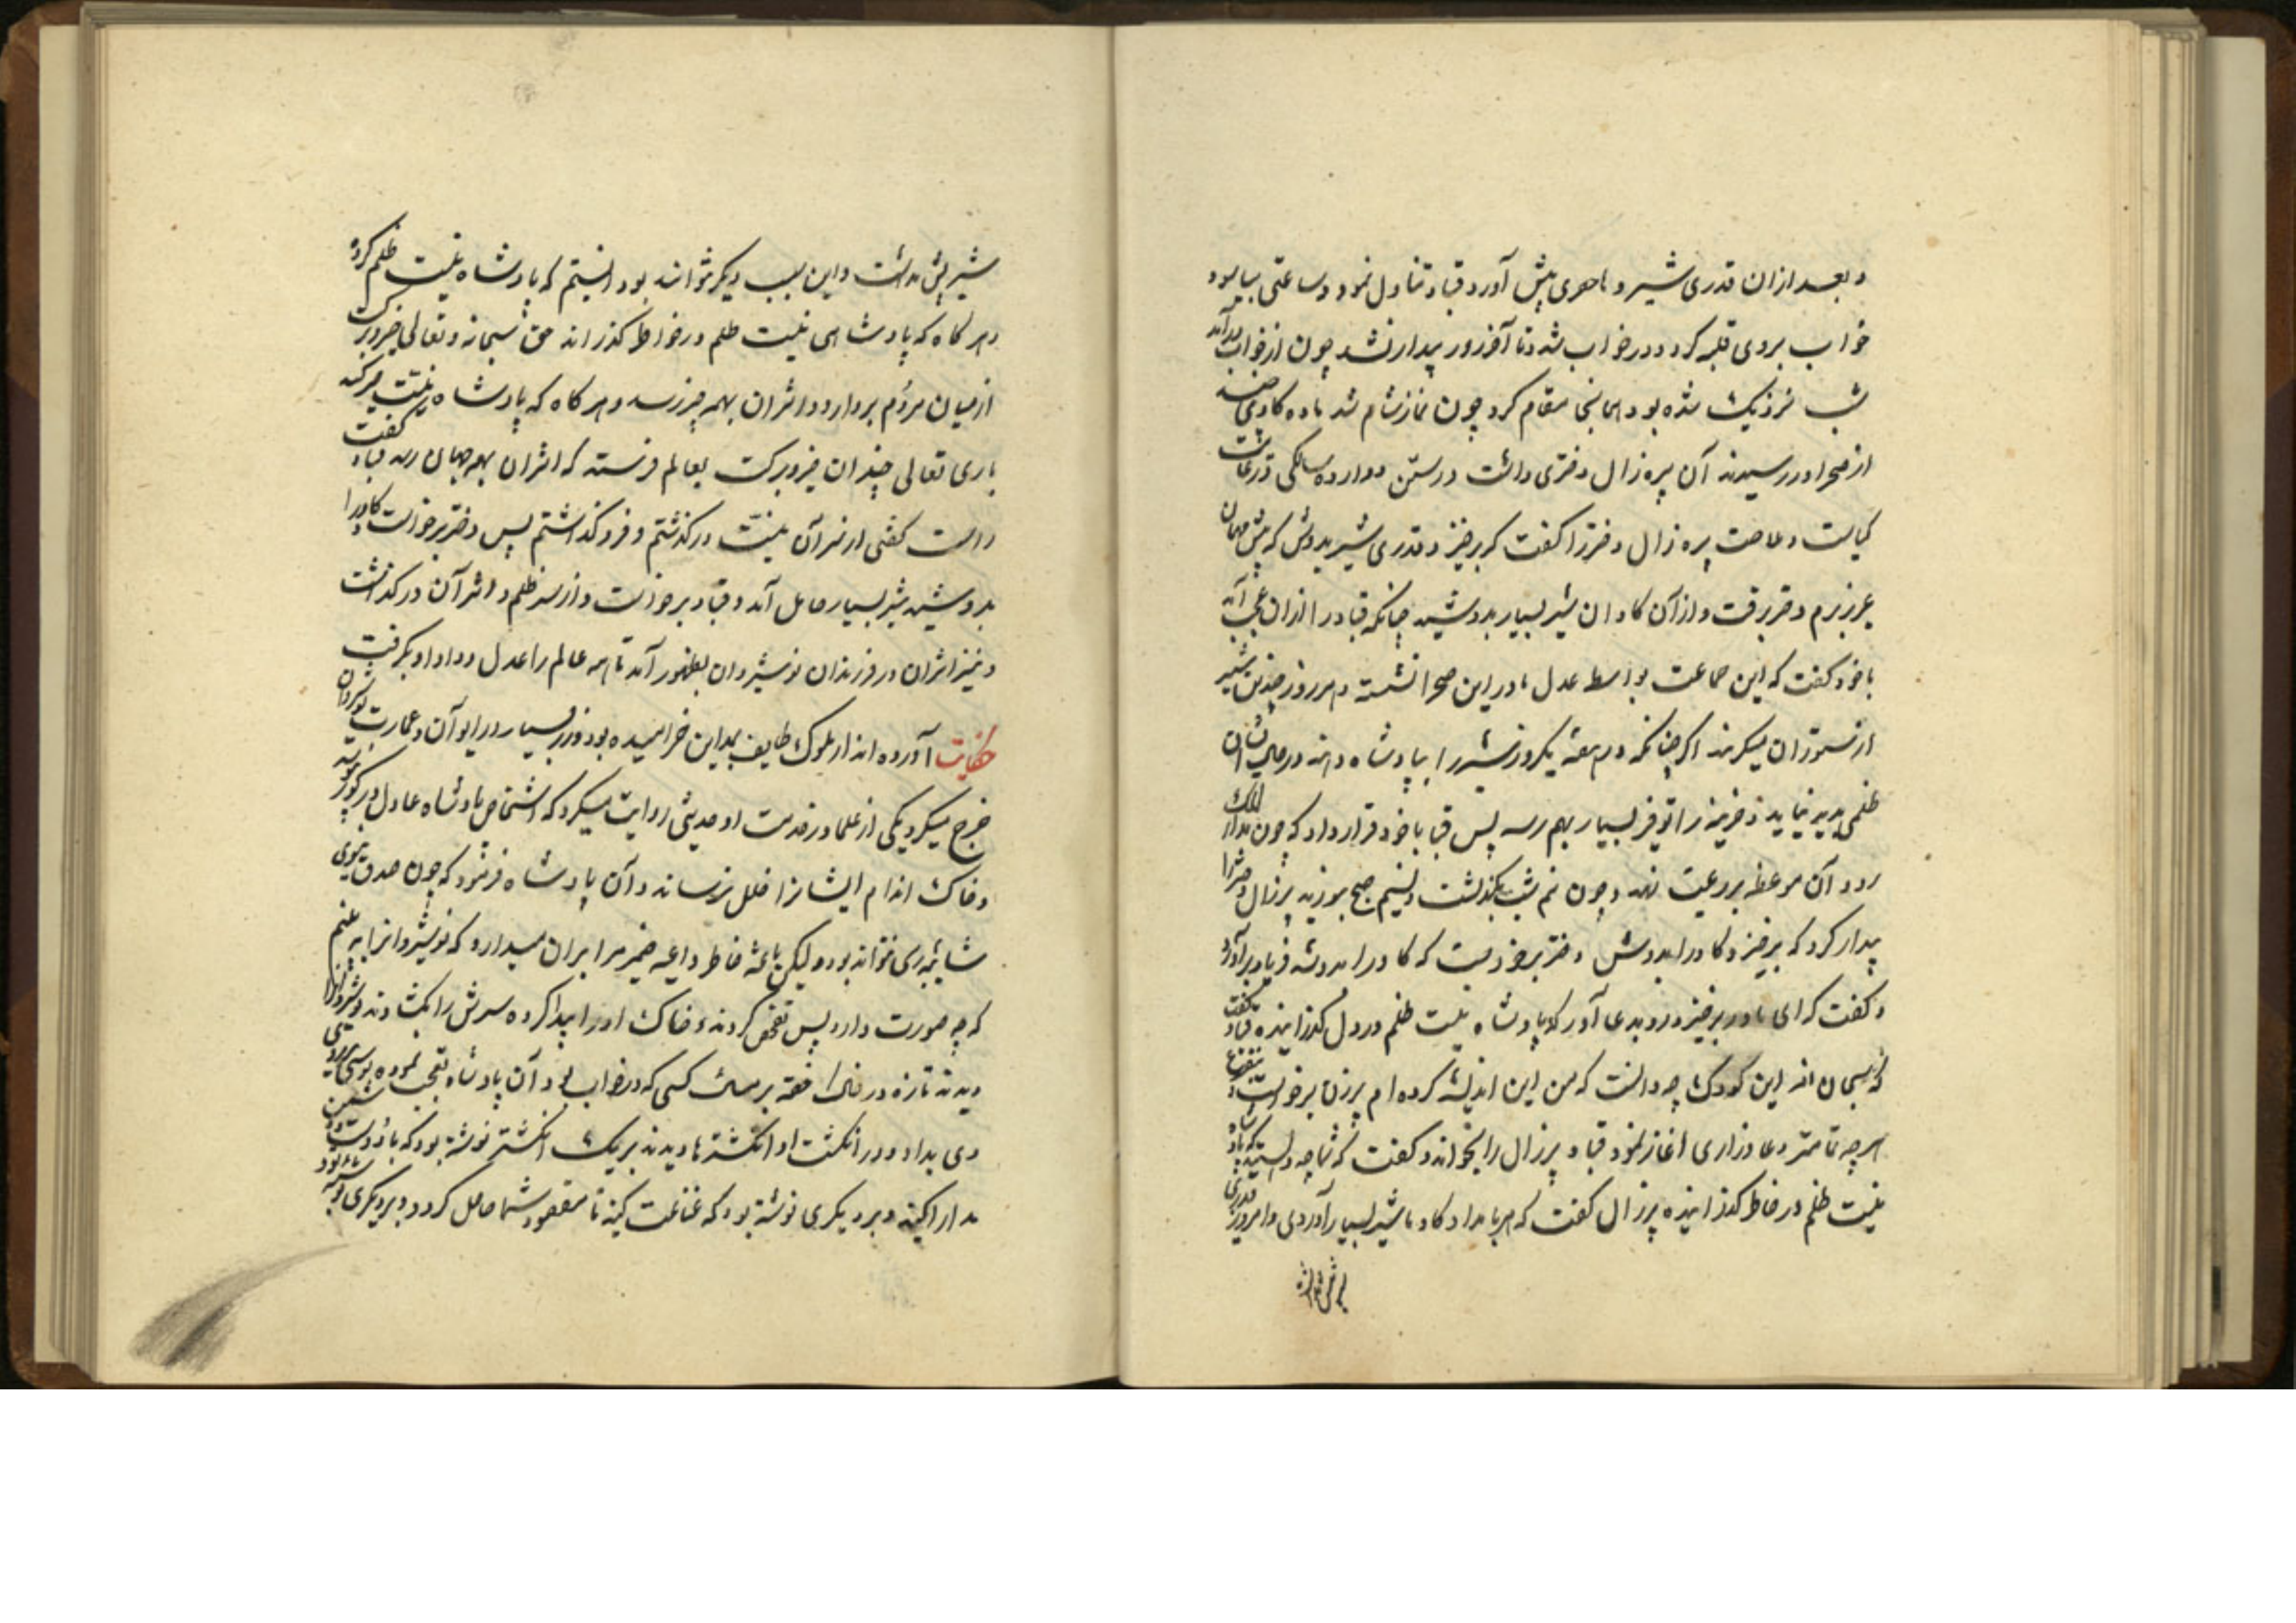 و بعد ازان قدری شیر و ماحضری پیش آورد قباد تناول نمود و ساعتی بیاسود
خواب بروی غلبه کرد و در خواب شد و تا آخر روز بیدار نشد چون از خواب درآمد
شب نزدیک شده بود همانجا مقام کرد چون نماز شام شد ماده کاوی چند
از صحرا در رسیدند آن پیره زال دختری داشت در سن دوازده سالکی در غایت
کیاست و ملاحت پیره زال دختر را کفت که برخیز و قدری شیر بدوش که پیش مهمان
عزیز برم دختر برفت و از آن کاوان شیر بسیار بدوشید چنانکه قباد را ازان عجب آمد
با خود کفت که این جماعت بواسطه عدل ما در این صحرا نشسته و هر روز چندین شیر
از ستوران میکیرند اکر چنانکه در هفته یکروز شیر را بپادشاه دهند در حال ایشان
ظلمی پدید نیاید و خزینه را توفیر بسیار بهم رسد پس قباد با خود قرار داد که چون بدار الملک
رود آن موظف بر رعیت نهد و چون نیم شب بکذشت و نسیم صبح بوزید پیرزال دختر را
بیدار کرد که برخیز و کاو را بدوش دختر برخواست که کاو را بدوشد فریاد برآورد
و کفت که ای مادر برخیز و رو بدعا آور که پادشاه بنیت ظلم در دل کذرانیده قباد کفت
که سبحان الله این کودک چه دانست که من این اندیشه کرده ام پیرزن برخواست و بتضرع
هر چه تمامتر دعا و زاری اغاز نمود قباد پیرزال را بخواند و کفت که شما چه دانستید که پادشاه
بنیت ظلم در خاطر کذرانیده پیرزال کفت که هر بامداد کاو ما شیر بسیار آوردی و امروز قدری
شیر پیش نداشت و این سبب دیکر نتواند بود دانستم که پادشاه بنیت ظلم کرده
و هر کاه که پادشاهی بنیت ظلم در خواطر کذراند حق سبحانه و تعالی خیر و برکت
از میان مردم بردارد و اثر آن بهمه چیز رسد و هر کاه که پادشاه نیت خیر کند
باری تعالی چندان خیر و برکت بعالم فرستد که اثر آن بهمه جهان رسد قباد کفت
راست کفتی از سر آن نیت در کذشتم و فرو کذاشتم پس دختر برخواست و کاو را
بدوشید شیر بسیار حاصل آمد و قباد برخواست و از سر ظلم و اثر آن در کذشت
و نیز اثر آن در فرزندان نوشیروان بظهور آمد تا همه عالم را عدل و داد او بکرفت
حکایت آورده اند از ملوک طایف بمداین خرامیده بود و زر بسیار در ایوان و عمارت نوشیروان
خرج میکرد یکی از علما در خدمت او حدیثی روایت میکرد که اشخاص پادشاه عادل در کور نپوسد
و خاک اندام ایشانرا خلل نرساند و آن پادشاه فرمود که چون صدق نبوی
شایبه ری نتواند بود و لیکن باعثه خاطر و داعیه ضمیر مرا بران میدارد که نوشیروانرا به بینم
که چه صورت دارد پس تفحص کردند و خاک او را پیدا کرده سرش را بکشادند نوشیروانرا
دیدند تازه در خاک خفته برمثال کسی که در خواب بود آن پادشاه تعجب نموده بوسی بر روی
وی بداد و در انکشت او انکشتریها دیدند بر یک انکشتر نوشته بود که با دوست و دشمن
مدارا کنید و بر دیکری نوشته بود که قناعت کنید تا مقصود شما حاصل کردد و بر دیکری نوشته بود